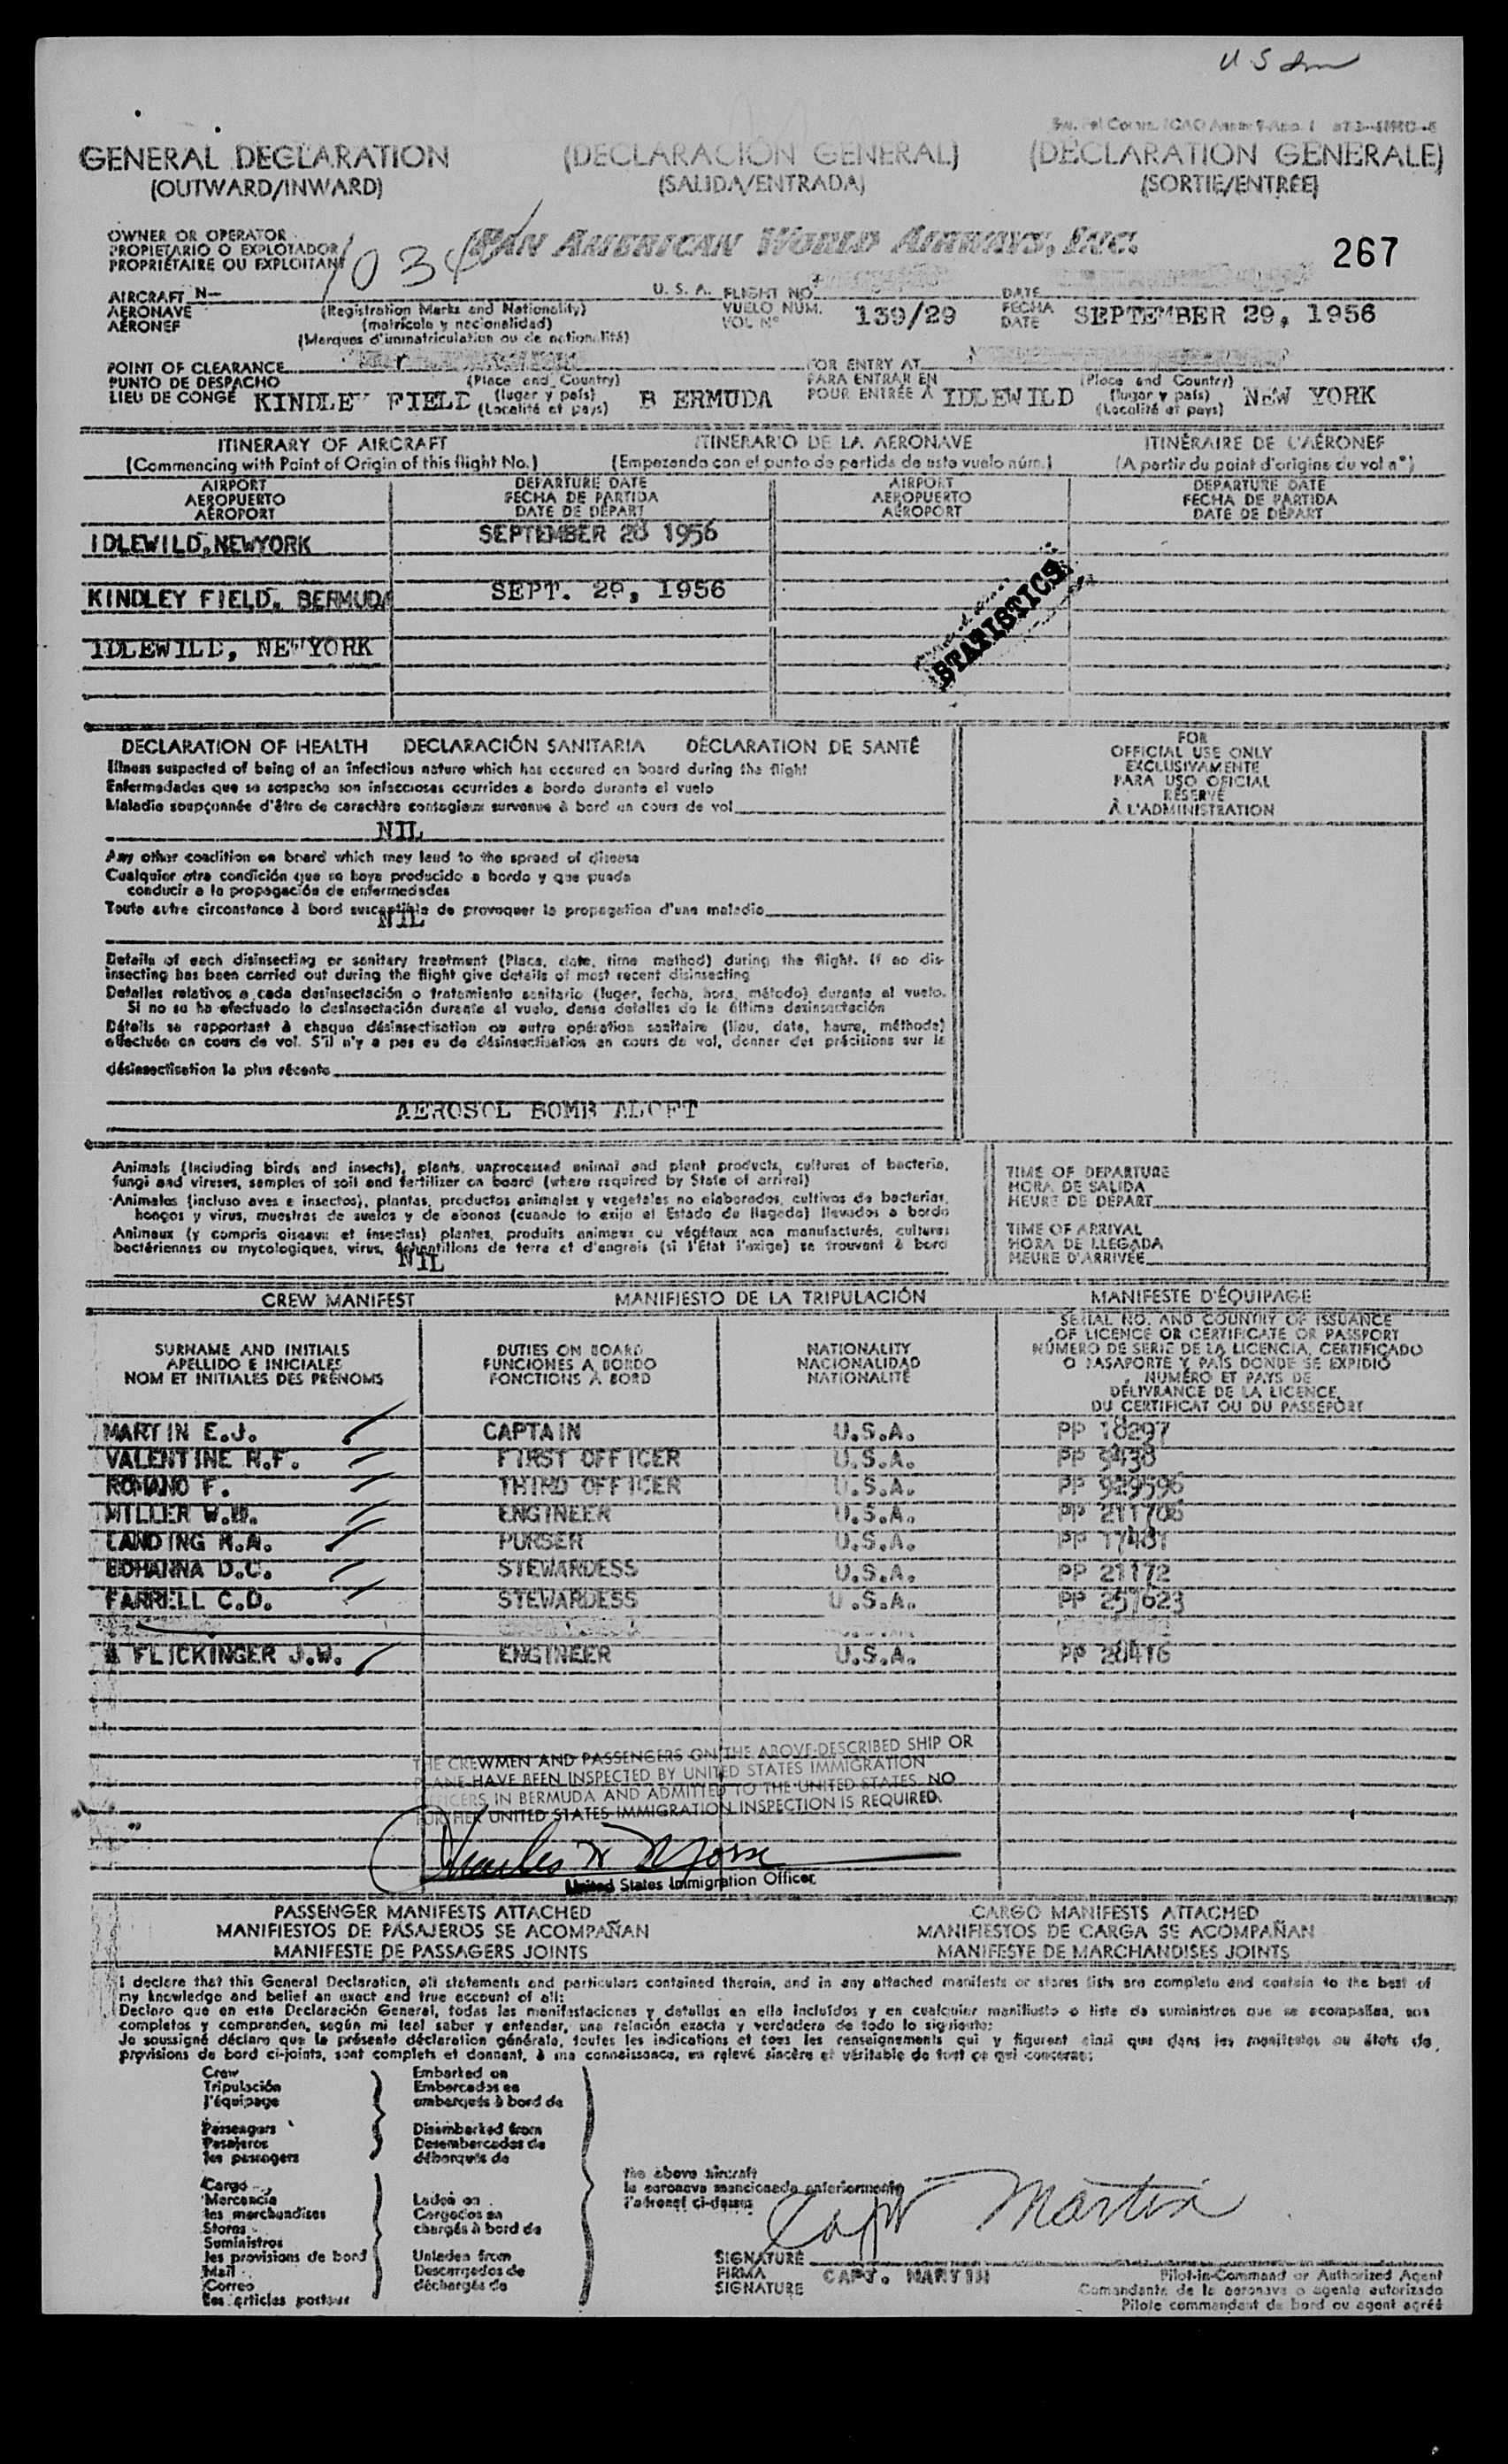 GENERAL DECLARATION (DECLARACIÓN GENERAL) (DÉCLARATION GÉNÉRALE)
(OUTWARD/INWARD) (SALIDA/ENTRADA) (SORTIE/ENTRÉE)
OWNER OR OPERATOR
PROPIETARIO O EXPLOTADOR
PROPRIÉTAIRE OU EXPLOITANT
PAN AMERICAN WORLD AIRWAYS, INC.
267
1034
AIRCRAFT N— U. S. A. FLIGHT NO. DATE
AERONAVE (Registration Marks and Nationality) VUELO NÚM. 139/29 FECHA SEPTEMBER 29, 1956
AÉRONEF (matrícula y nacionalidad) VOL Nº DATE
(Marques d'immatriculation ou de nationalité)
POINT OF CLEARANCE FOR ENTRY AT
PUNTO DE DESPACHO (Place and Country) PARA ENTRAR EN (Place and Country)
LIEU DE CONGÉ KINDLEY FIELD (lugar y país) B ERMUDA POUR ENTRÉE À IDLEWILD (lugar y país) NEW YORK
(Localité et pays) (Localité et pays)
ITINERARY OF AIRCRAFT ITINERARIO DE LA AERONAVE ITINÉRAIRE DE L'AÉRONEF
(Commencing with Point of Origin of this flight No.) (Empezando con el punto de partida de este vuelo núm.) (A partir du point d'origine du vol nº)
AIRPORT DEPARTURE DATE AIRPORT DEPARTURE DATE
AEROPUERTO FECHA DE PARTIDA AEROPUERTO FECHA DE PARTIDA
AÉROPORT DATE DE DÉPART AÉROPORT DATE DE DÉPART
IDLEWILD,NEWYORK SEPTEMBER 28 1956
KINDLEY FIELD, BERMUDA SEPT. 29, 1956
IDLEWILD, NEWYORK
STATISTICS
DECLARATION OF HEALTH DECLARACIÓN SANITARIA DÉCLARATION DE SANTÉ
FOR
OFFICIAL USE ONLY
EXCLUSIVAMENTE
PARA USO OFICIAL
RÉSERVÉ
À L'ADMINISTRATION
Illness suspected of being of an infectious nature which has occured on board during the flight
Enfermedades que se sospecha son infecciosas ocurridas a bordo durante el vuelo
Maladie soupçonnée d'être de caractère contagieux survenue à bord en cours de vol
NIL
Any other condition on board which may lead to the spread of disease
Cualquier otra condición que se haya producido a bordo y que pueda
conducir a la propagación de enfermedades
Toute autre circonstance à bord susceptible de provoquer la propagation d'une maladie
NIL
Details of each disinsecting or sanitary treatment (Place, date, time method) during the flight. If no dis-
insecting has been carried out during the flight give details of most recent disinsecting
Detalles relativos a cada desinsectación o tratamiento sanitario (lugar, fecha, hora, método) durante el vuelo.
Si no se ha efectuado la desinsectación durante el vuelo, dense detalles de la última desinsectación
Détails se rapportant à chaque désinsectisation ou autre opération sanitaire (lieu, date, heure, méthode)
effectuée en cours de vol. S'il n'y a pas eu de désinsectisation en cours de vol, donner des précisions sur la
désinsectisation la plus récente
AEROSOL BOMB ALOFT
Animals (including birds and insects), plants, unprocessed animal and plant products, cultures of bacteria,
fungi and viruses, samples of soil and fertilizer on board (where required by State of arrival)
Animales (incluso aves e insectos), plantas, productos animales y vegetales no elaborados, cultivos de bacterias,
hongos y virus, muestras de suelos y de abonos (cuando lo exija el Estado de llegada) llevados a bordo
Animaux (y compris oiseaux et insectes) plantes, produits animaux ou végétaux non manufacturés, cultures
bactériennes ou mycologiques, virus, échantillons de terre et d'engrais (si l'État l'exige) se trouvant à bord
NIL
TIME OF DEPARTURE
HORA DE SALIDA
HEURE DE DÉPART
TIME OF ARRIVAL
HORA DE LLEGADA
HEURE D'ARRIVÉE
CREW MANIFEST MANIFIESTO DE LA TRIPULACIÓN MANIFESTE D'ÉQUIPAGE
SURNAME AND INITIALS
APELLIDO E INICIALES
NOM ET INITIALES DES PRÉNOMS
DUTIES ON BOARD
FUNCIONES A BORDO
FONCTIONS À BORD
NATIONALITY
NACIONALIDAD
NATIONALITÉ
SERIAL NO. AND COUNTRY OF ISSUANCE
OF LICENCE OR CERTIFICATE OR PASSPORT
NÚMERO DE SERIE DE LA LICENCIA, CERTIFICADO
O PASAPORTE Y PAÍS DONDE SE EXPIDIÓ
NUMÉRO ET PAYS DE
DÉLIVRANCE DE LA LICENCE,
DU CERTIFICAT OU DU PASSEPORT
MARTIN E.J. CAPTAIN U.S.A. PP 18297
VALENTINE R.F. FIRST OFFICER U.S.A. PP 9438
ROMANO F. THIRD OFFICER U.S.A. PP 929596
MILLER W.W. ENGINEER U.S.A. PP 211706
LANDING R.A. PURSER U.S.A. PP 17481
BOHANNA D.C. STEWARDESS U.S.A. PP 21172
FARRELL C.D. STEWARDESS U.S.A. PP 257623
FLICKINGER J.W. ENGINEER U.S.A. PP 28416
THE CREWMEN AND PASSENGERS ON THE ABOVE-DESCRIBED SHIP OR
PLANE HAVE BEEN INSPECTED BY UNITED STATES IMMIGRATION
OFFICERS IN BERMUDA AND ADMITTED TO THE UNITED STATES. NO
FURTHER UNITED STATES IMMIGRATION INSPECTION IS REQUIRED.
United States Immigration Officer
PASSENGER MANIFESTS ATTACHED CARGO MANIFESTS ATTACHED
MANIFIESTOS DE PASAJEROS SE ACOMPAÑAN MANIFIESTOS DE CARGA SE ACOMPAÑAN
MANIFESTE DE PASSAGERS JOINTS MANIFESTE DE MARCHANDISES JOINTS
I declare that this General Declaration, all statements and particulars contained therein, and in any attached manifests or stores lists are complete and contain to the best of
my knowledge and belief an exact and true account of all:
Declaro que en esta Declaración General, todas las manifestaciones y detalles en ella incluídos y en cualquier manifiesto o lista de suministros que se acompañan, son
completos y comprenden, según mi leal saber y entender, una relación exacta y verdadera de todo lo siguiente:
Je soussigné déclare que la présente déclaration générale, toutes les indications et tous les renseignements qui y figurent ainsi que dans les manifestes ou états de
provisions de bord ci-joints, sont complets et donnent, à ma connaissance, un relevé sincère et véritable de tout ce qui concerne:
Crew Embarked on
Tripulación Embarcados en
l'équipage embarqués à bord de
Passengers Disembarked from
Pasajeros Desembarcados de
les passagers débarqués de
Cargo
Mercancía Laden on
les marchandises Cargados en
Stores chargés à bord de
Suministros
les provisions de bord Unladen from
Mail Descargados de
Correo déchargés de
les articles postaux
the above aircraft
la aeronave mencionada anteriormente
l'aéronef ci-dessus
Capt Martin
SIGNATURE
FIRMA CAPT. MARTIN
SIGNATURE
Pilot-in-Command or Authorized Agent
Comandante de la aeronave o agente autorizado
Pilote commandant de bord ou agent agréé